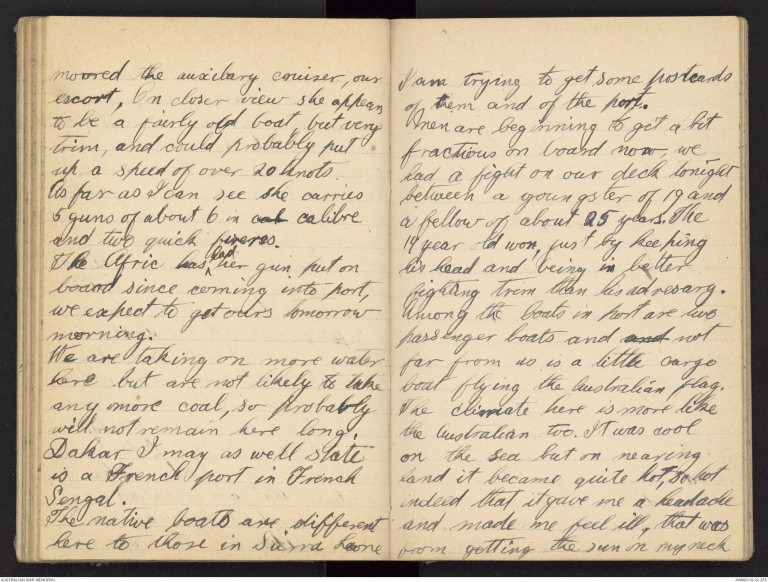 moored the auxilary cruiser, our
escort, On closer view she appears
to be a fairly old boat but very
trim, and could probably put
up a speed of over 20 knots.
As far as I can see she carries
5 guns of about 6 in cal calibre
and two quick fireres.
The Afric has had her gun put on
board since coming into port,
we expect to get ours tomorrow
morning.
We are taking on more water
here but are not likely to take
any more coal, so probably
will not remain here long.
Dakar I may as well state
is a French port in French
Sengal.
The native boats are different
here to those in Sierra Leone
I am trying to get some postcards
of them and of the port.
Men are beginning to get a bit
fractious on board now, we
had a fight on our deck tonight
between a youngster of 19 and
a fellow of about 25 years. The
19 year old won, just by keeping
his head and being in better
fighting trim than his adversary.
Among the boats in port are two
passenger boats and and not
far from us is a little cargo
boat flying the Australian flag.
The climate here is more like
the Australian too. It was cool
on the sea but on nearing
land it became quite hot, so hot
indeed that it gave me a headache
and made me feel ill, that was
from getting the sun on my neck
AUSTRALIAN WAR MEMORIAL